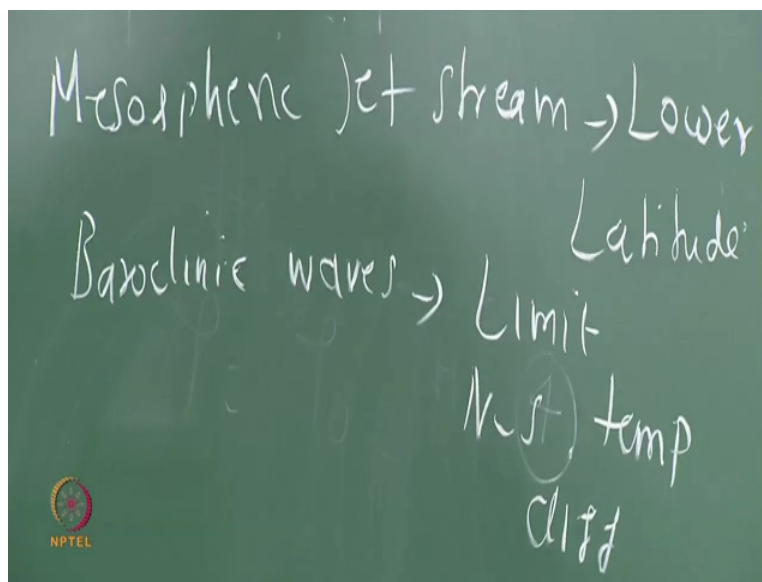 Mesospheric Jet stream → Lower
Latitude
Baroclinic waves → Limit
N-S temp
diff
NPTEL